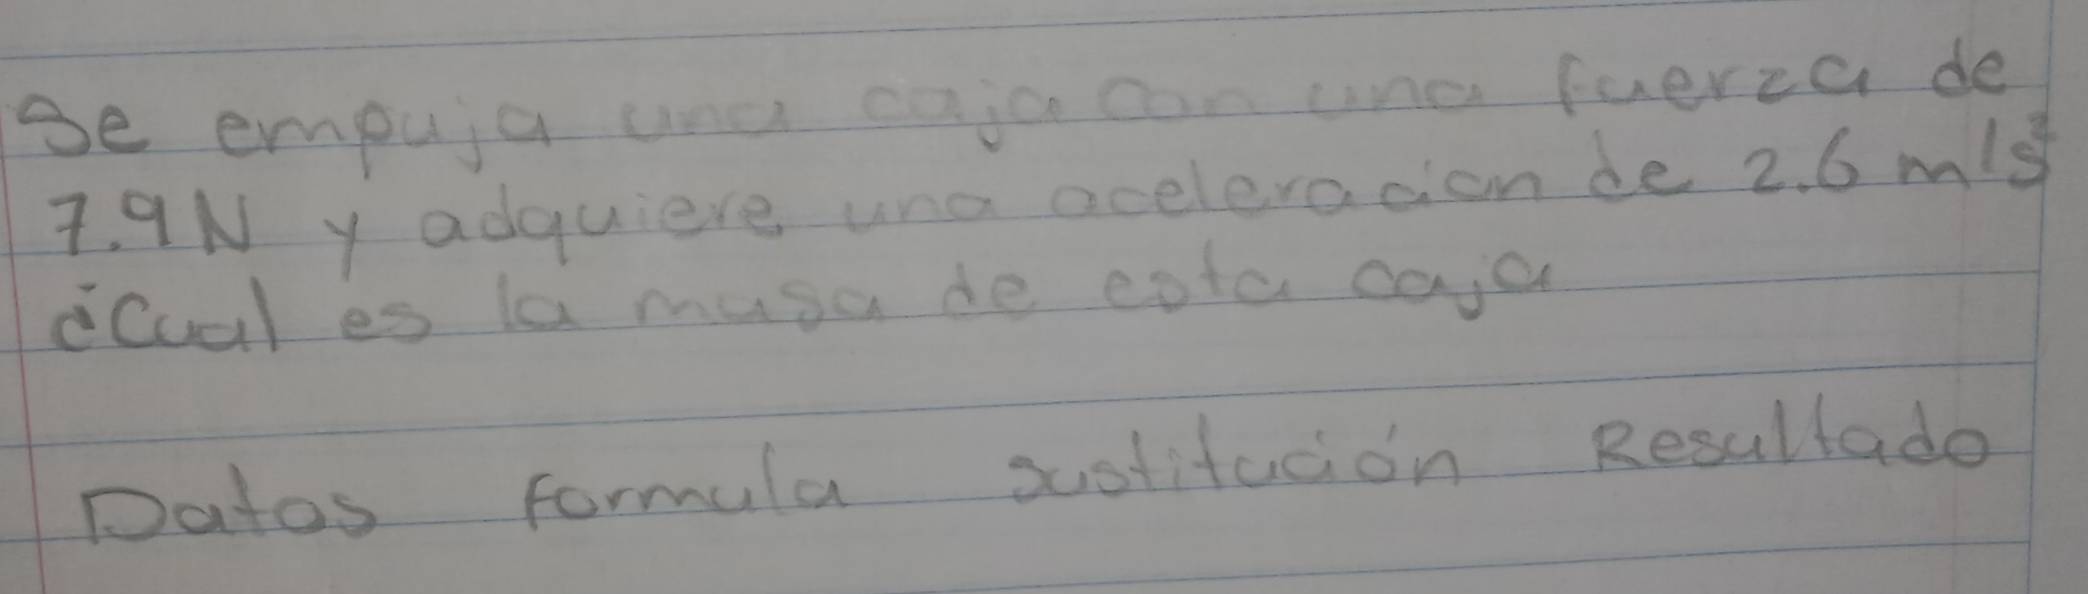 Se empuja una caja con una fuerza de
7.9N y adquiere una aceleracion de 2.6 m/s²
¿Cual es la masa de esta caja
Datos formula sustitución Resultado